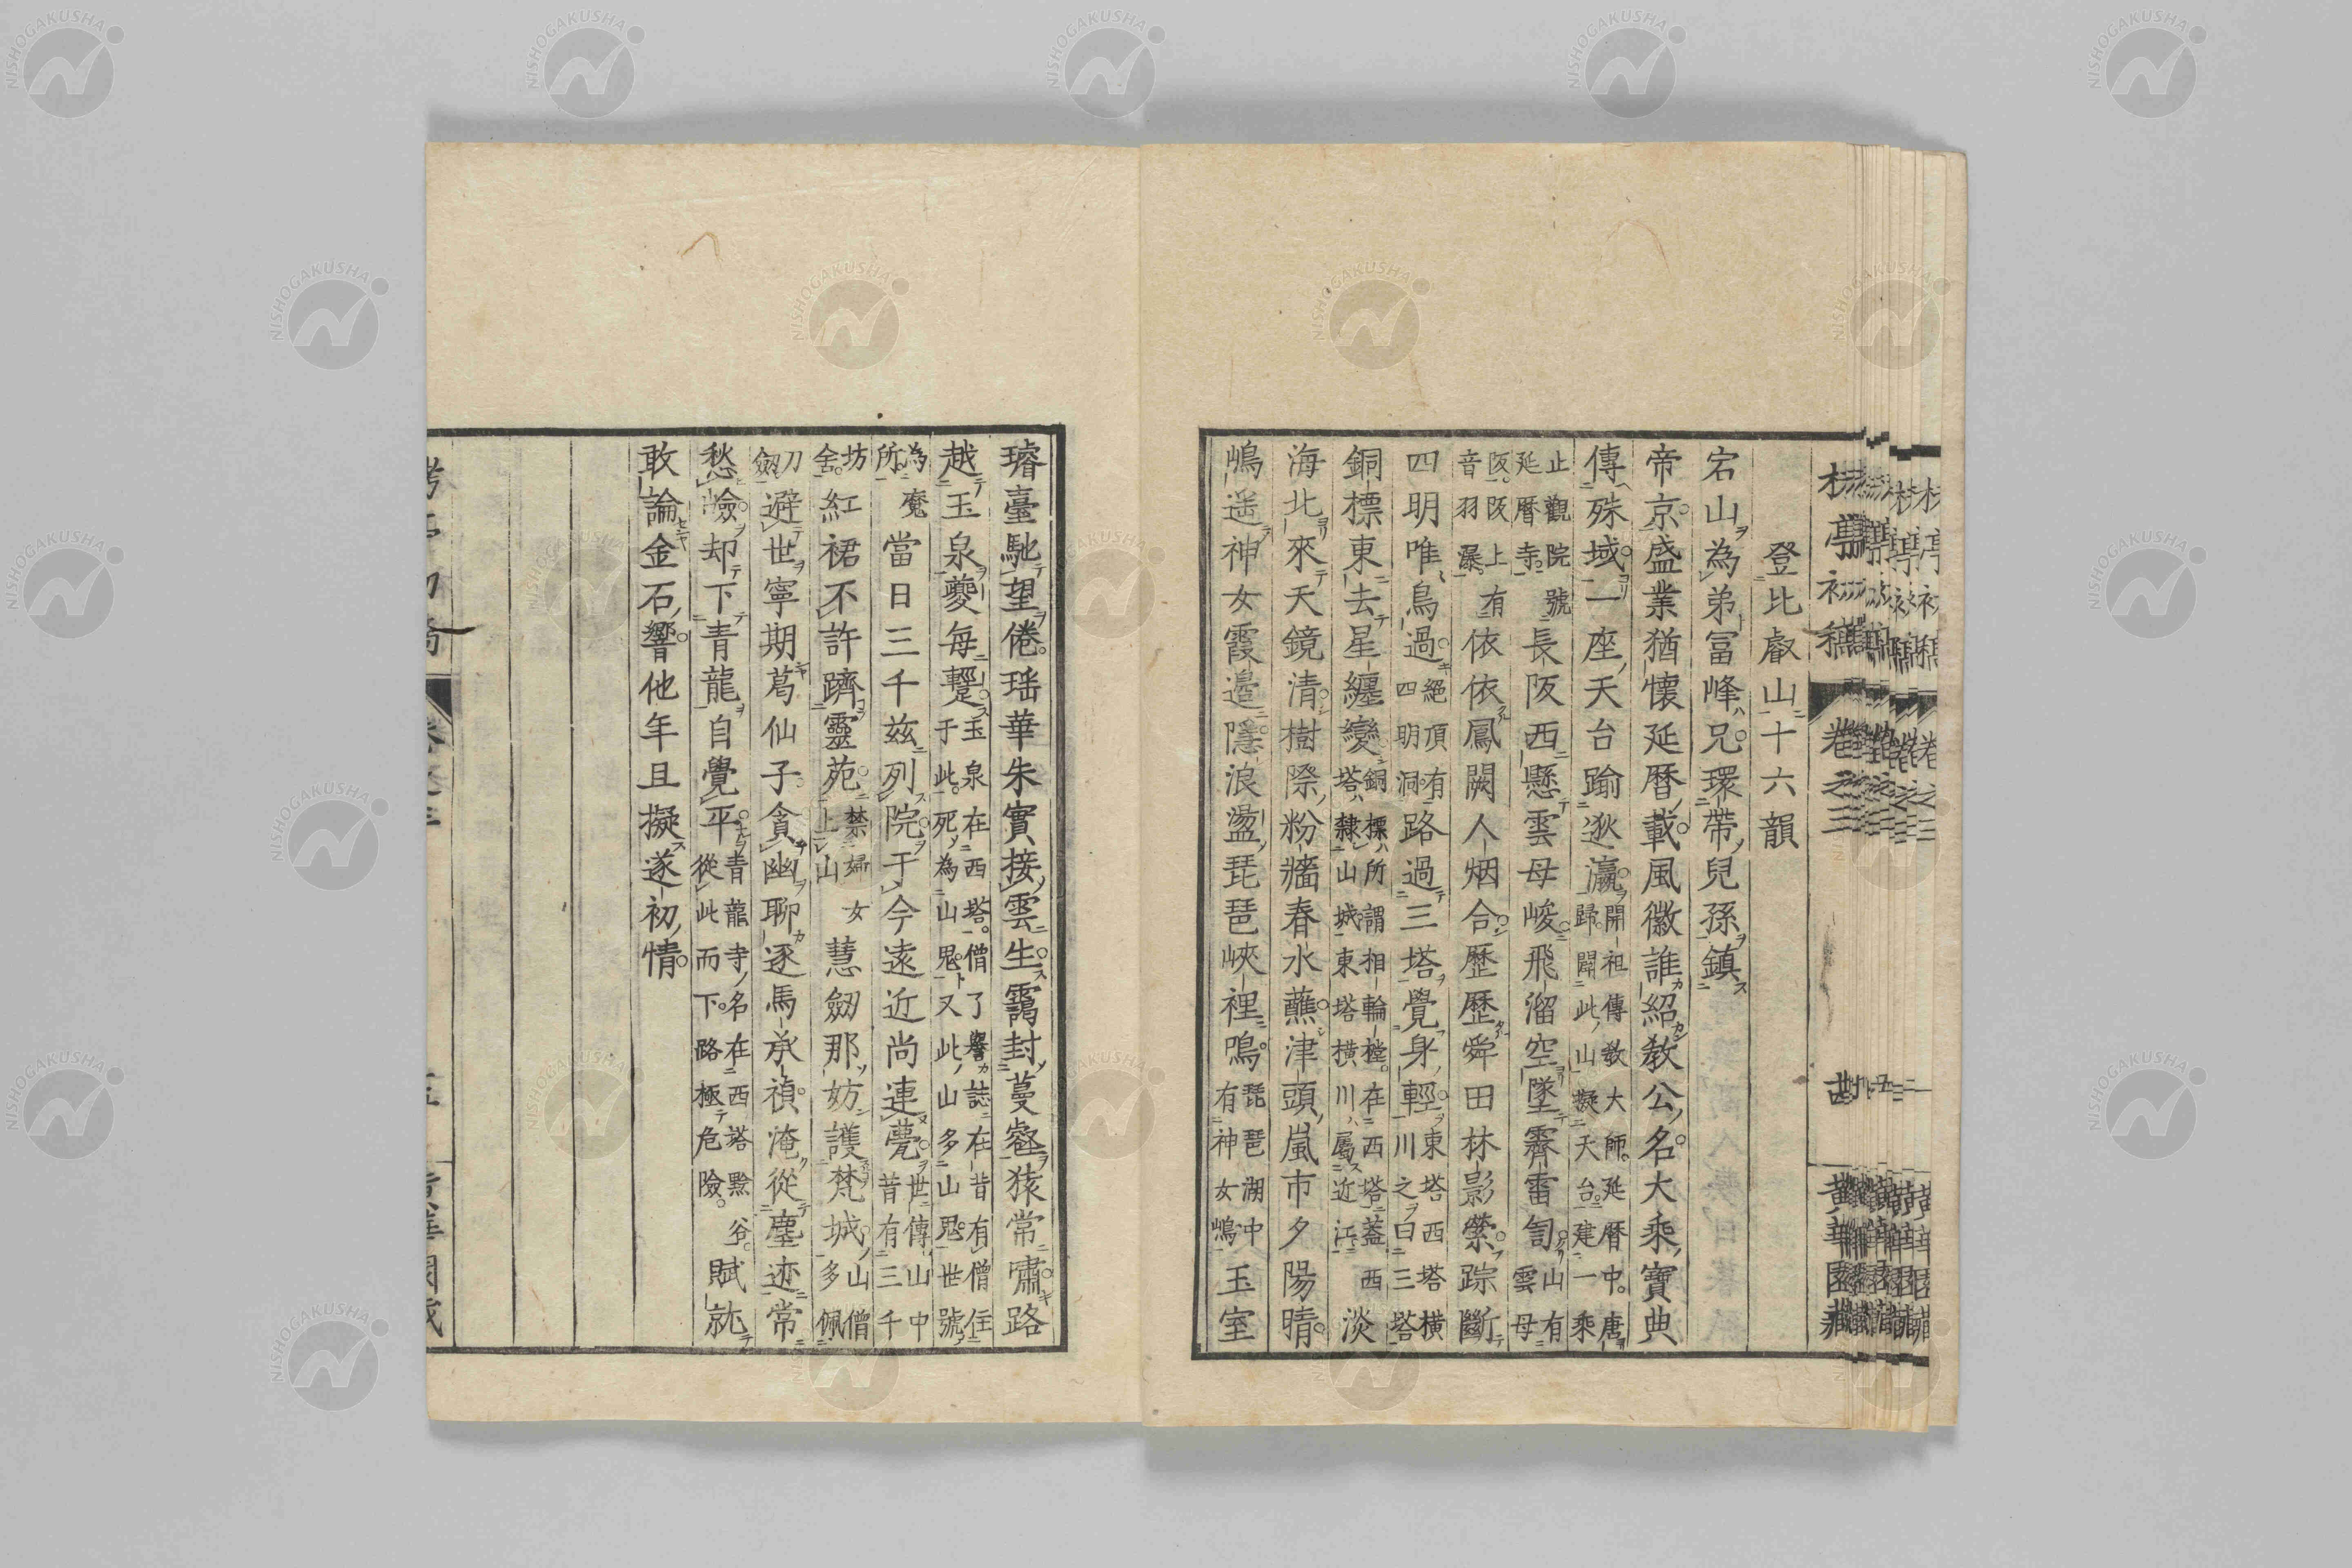 登比叡山十六韻
宕山為弟冨峰兄環帶兒孫鎮
帝京盛業猶懷延暦載風徽誰紹教公名大乘寶典
傳殊域一座天台踰逖瀛開祖傳教大師延暦中唐歸開此山擬天台建一乘
止觀院號延暦寺長阪西懸雲母峻飛溜空墜霽雷訇山有雲母
阪阪上有音羽瀑依依鳳闕人烟合歷歷舜田林影縈踪斷
四明唯鳥過絕頂有四明洞路過三塔覺身輕東塔西塔橫川之曰三塔
銅標東去星纏變銅標所謂相輪樘在西塔蓋西塔隸山城東塔橫川屬近江淡
海北來天鏡清樹際粉牆春水蘸津頭嵐市夕陽晴
鳰遥神女霞邉隱浪盪琵琶峽裡鳴琵琶湖中有神女嶋玉室
璿臺馳望倦瑶華朱實接雲生靄封蔓壑猿常嘯路
越玉泉夔每躩玉泉在西塔僧了譽誌在昔有僧住于此死為山鬼又此山多山鬼世號
為魔所當日三千茲列院于今遠近尚連甍世傳山中昔有三千
坊舍紅裙不許躋靈苑禁婦女上山慧劔那妨護梵城山僧多佩
刀劔避世寧期葛仙子貪幽聊逐馬承禎淹從塵迹常
愁險却下青龍自覺平青龍寺名在西塔黙谷從此而下路極危險賦就
敢論金石響他年且擬遂初情
卷之三
黄華園藏
NISHOGAKUSHA